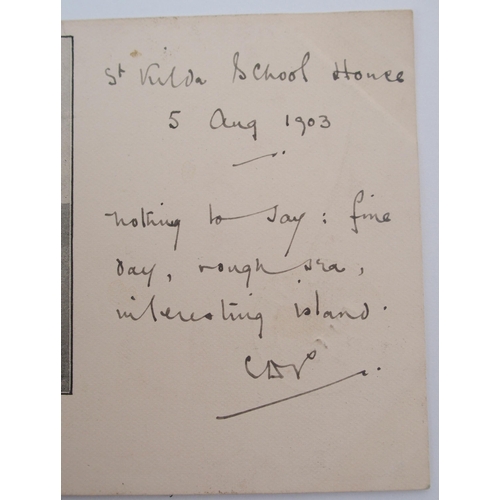 St Kilda School House
5 Aug 1903
nothing to say: fine
day, rough sea,
interesting island.